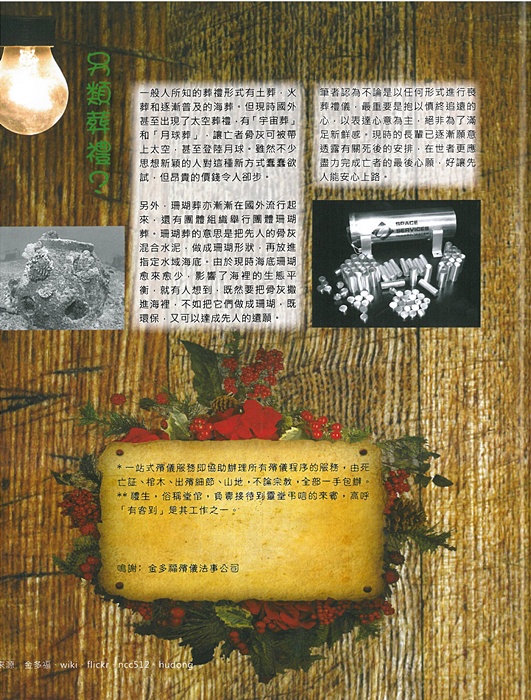 另類葬禮？
一般人所知的葬禮形式有土葬，火
葬和逐漸普及的海葬。但現時國外
甚至出現了太空葬禮，有「宇宙葬」
和「月球葬」，讓亡者骨灰可被帶
上太空，甚至登陸月球。雖然不少
思想新穎的人對這種新方式蠢蠢欲
試，但昂貴的價錢令人卻步。
另外，珊瑚葬亦漸漸在國外流行起
來，還有團體組織舉行團體珊瑚
葬。珊瑚葬的意思是把先人的骨灰
混合水泥，做成珊瑚形狀，再放進
指定水域海底。由於現時海底珊瑚
愈來愈少，影響了海裡的生態平
衡，就有人想到，既然要把骨灰撒
進海裡，不如把它們做成珊瑚，既
環保，又可以達成先人的遺願。
筆者認為不論是以任何形式進行喪
葬禮儀，最重要是抱以慎終追遠的
心，以表達心意為主，絕非為了滿
足新鮮感。現時的長輩已逐漸願意
透露有關死後的安排，在世者更應
盡力完成亡者的最後心願，好讓先
人能安心上路。
SPACE
SERVICES
*一站式殯儀服務即協助辦理所有殯儀程序的服務，由死
亡証、棺木、出殯細節、山地，不論宗教，全部一手包辦。
**禮生，俗稱堂倌，負責接待到靈堂弔唁的來賓，高呼
「有客到」是其工作之一。
鳴謝：金多福殯儀法事公司
來源：金多福、wiki、flickr、ncc512、hudong